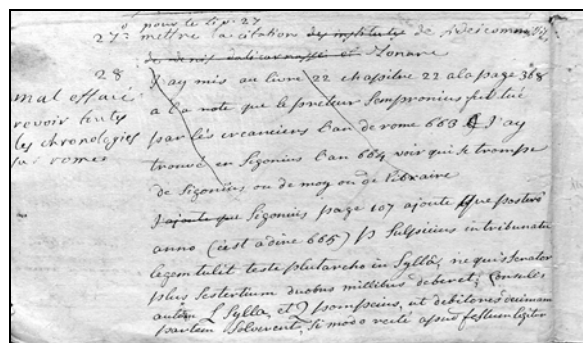 o pour le tip. 27
27° mettre la citation des institutes de fideicommiss.
de denis dalicarnasse et Zonare
28
J'ay mis au livre 22 chapitre 22 a la page 368
mal effacé
a la note que le preteur Sempronius fut tué
revoir toutes
par les creanciers l'an de rome 663 J'ay
les chronologies
trouvé en Sigonius l'an 664 voir qui se trompe
sur rome
de Sigonius ou de moy ou de libraire
J'ajoute que Sigonius page 107 ajoute que postero
anno (c'est a dire 665) P Sulpicius in tribunatu
legem tulit teste plutarcho in Sylla, ne quis Senator
plus Sestertium duobus millibus deberet; Consules
autem L Sylla, et Q pompeius, ut debitores decimam
partem Solverent, si modo recte apud festum legitur